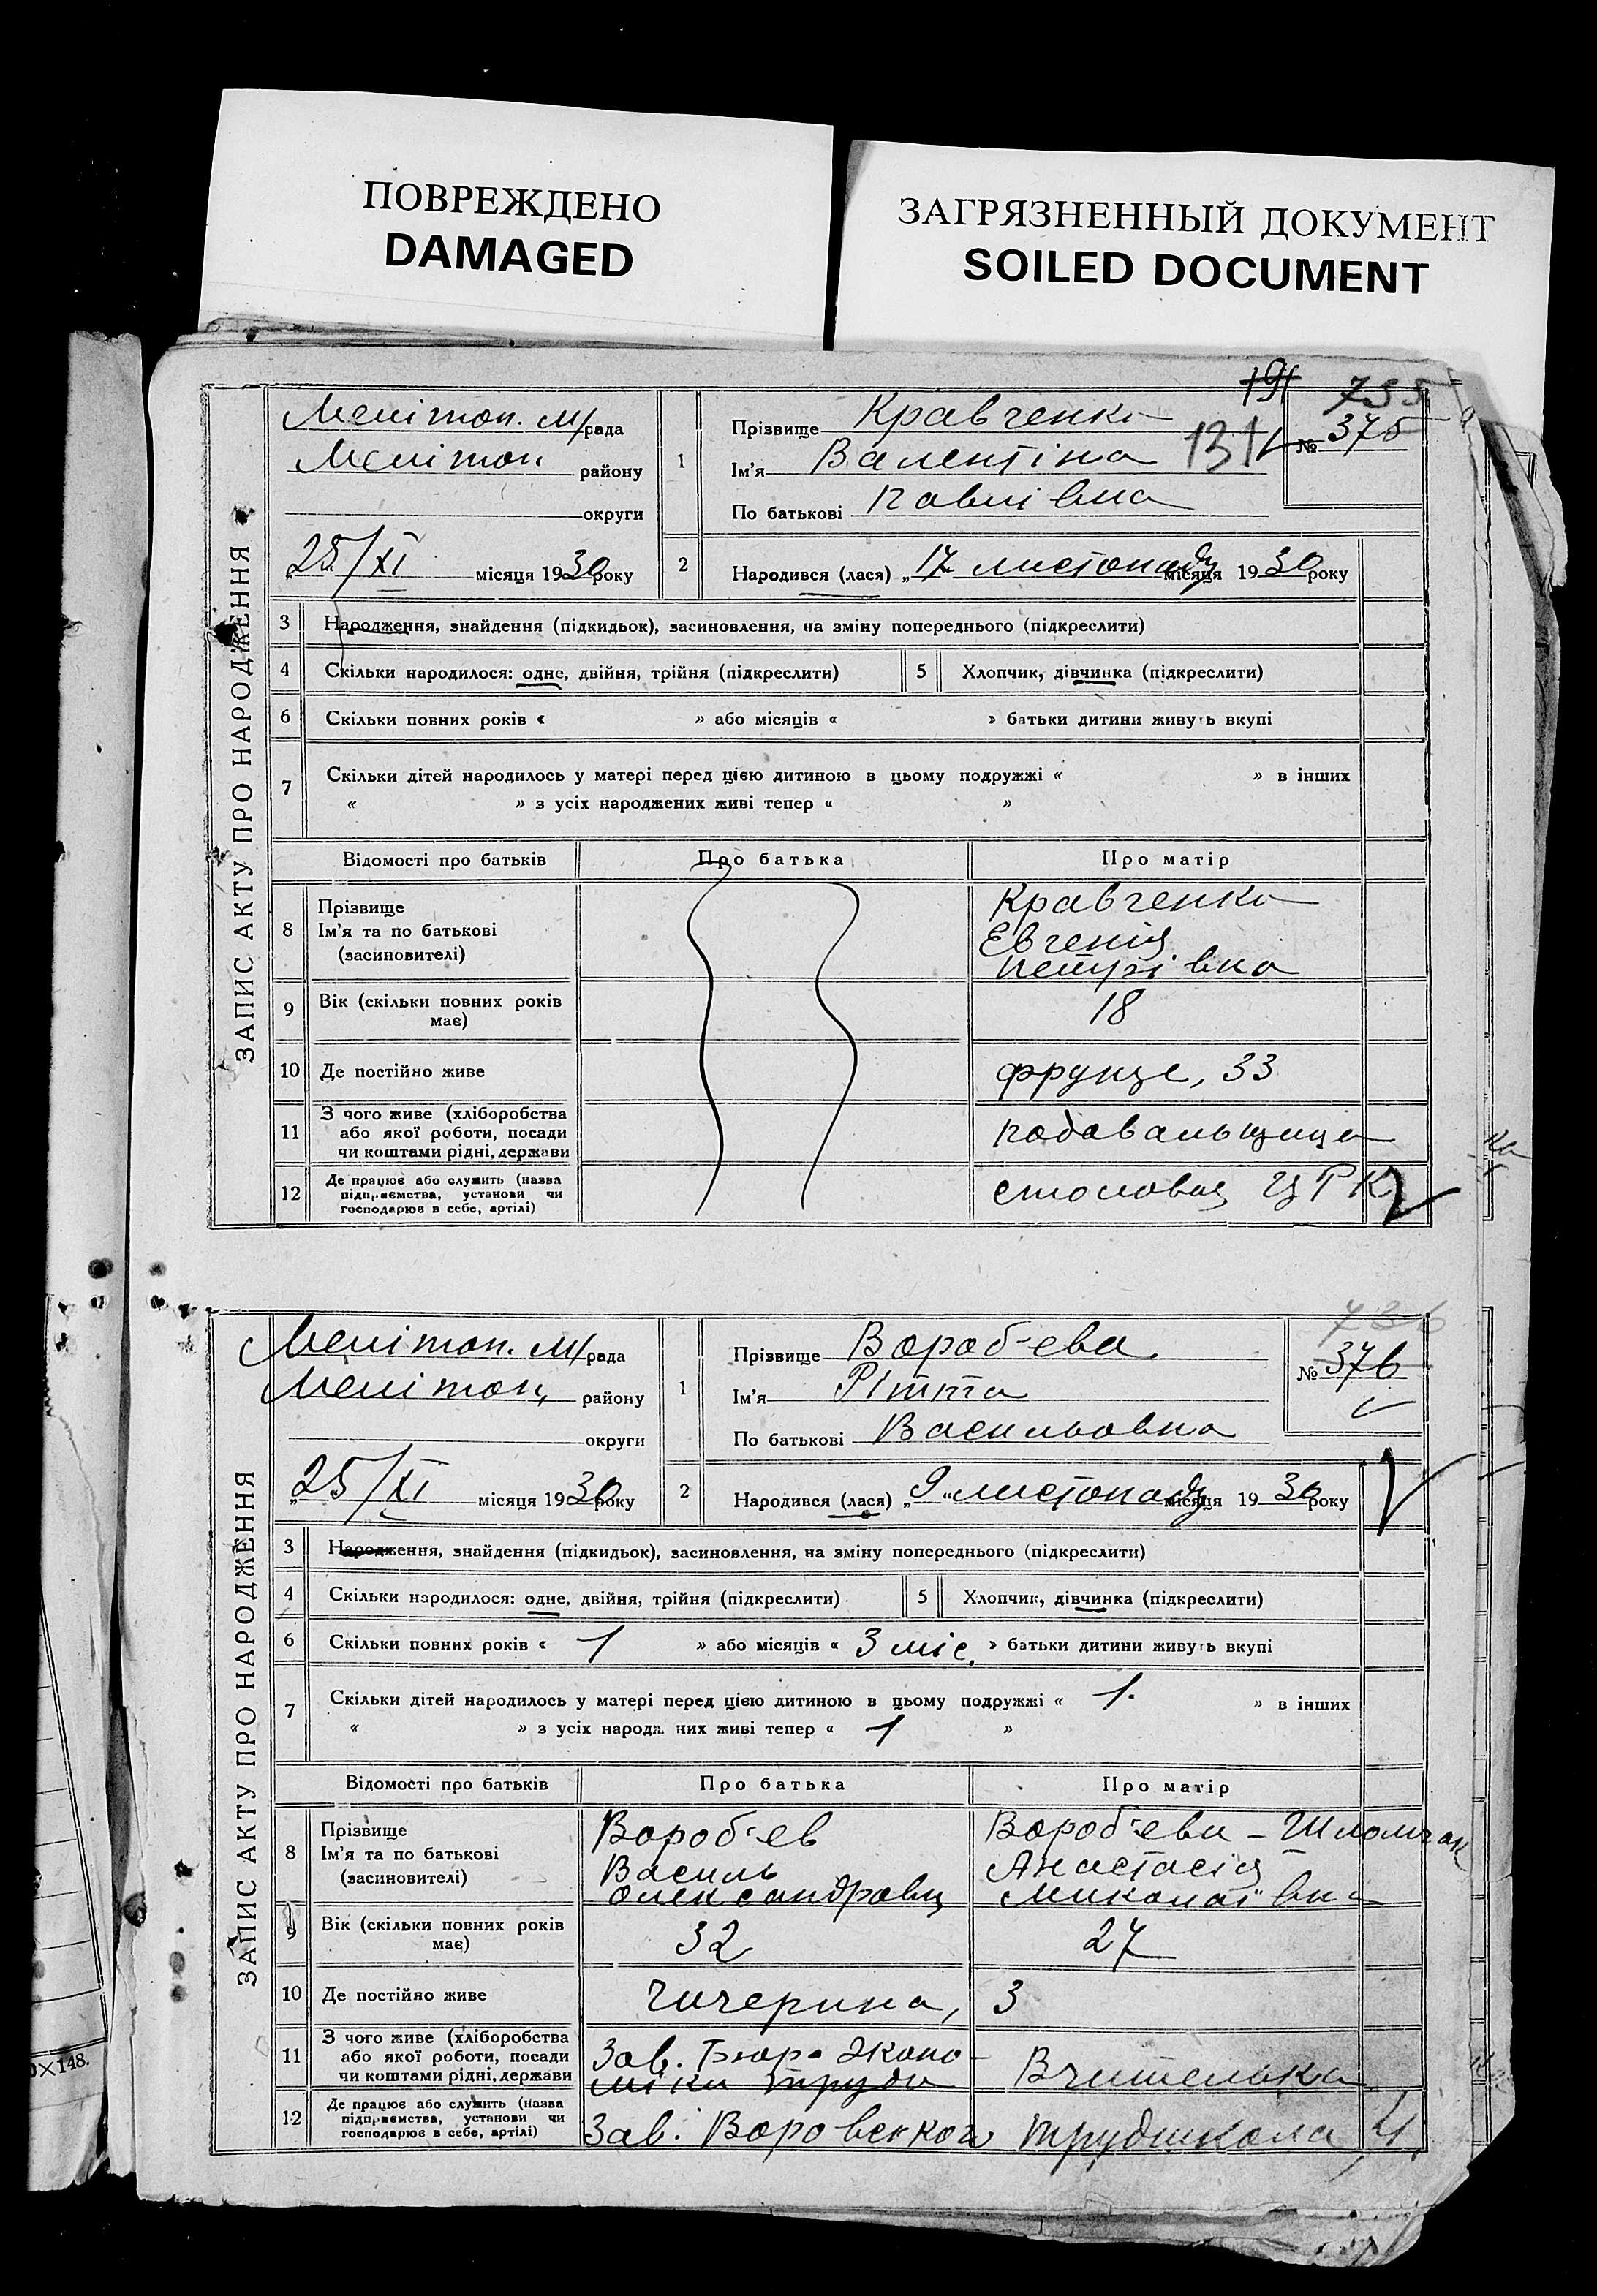 ПОВРЕЖДЕНО
DAMAGED
ЗАГРЯЗНЕННЫЙ ДОКУМЕНТ
SOILED DOCUMENT
ЗАПИС АКТУ ПРО НАРОДЖЕННЯ
Мелітоп. М/рада
Мелітоп. району
округи
„25/XI місяця 1930 року
1
Прізвище Кравченко
Ім'я Валентіна
По батькові Павлівна
191
735
131
№ 375
2
Народився (лася) „17 листопаду місяця 1930 року
3 Народження, знайдення (підкидьок), засиновлення, на зміну попереднього (підкреслити)
4 Скільки народилося: одне, двійня, трійня (підкреслити) 5 Хлопчик, дівчинка (підкреслити)
6 Скільки повних років « » або місяців « » батьки дитини живуть вкупі
7 Скільки дітей народилось у матері перед цією дитиною в цьому подружжі « » в інших
« » з усіх народжених живі тепер « »
Відомості про батьків Про батька Про матір
8 Прізвище
Ім'я та по батькові
(засиновителі)
Кравченко
Евгенія
Петрівна
9 Вік (скільки повних років
має)
18
10 Де постійно живе Фрунзе, 33
11 З чого живе (хліборобства
або якої роботи, посади
чи коштами рідні, держави
подавальщица
12 Де працює або служить (назва
підприємства, установи чи
господарює в себе, артілі)
столовая ЦРК
ЗАПИС АКТУ ПРО НАРОДЖЕННЯ
Мелітоп. М/рада
Мелітоп, району
округи
„25/XI місяця 1930 року
1
Прізвище Вороб'ева
Ім'я Рітта
По батькові Васильовна
736
№ 376
2
Народився (лася) „9" листопаду місяця 1930 року
3 Народження, знайдення (підкидьок), засиновлення, на зміну попереднього (підкреслити)
4 Скільки народилося: одне, двійня, трійня (підкреслити) 5 Хлопчик, дівчинка (підкреслити)
6 Скільки повних років « 1 » або місяців « 3 міс. » батьки дитини живуть вкупі
7 Скільки дітей народилось у матері перед цією дитиною в цьому подружжі « 1. » в інших
« » з усіх народжених живі тепер « 1 »
Відомості про батьків Про батька Про матір
8 Прізвище
Ім'я та по батькові
(засиновителі)
Вороб'ев
Василь
Олександровіч
Вороб'ева -
Анастасія
Миколаївна
9 Вік (скільки повних років
має)
32 27
10 Де постійно живе Чичерина, 3
11 З чого живе (хліборобства
або якої роботи, посади
чи коштами рідні, держави
Зав. Бюро Эконо-
міки труда
Вчителька
12 Де працює або служить (назва
підприємства, установи чи
господарює в себе, артілі)
Зав. Воровского Трудшкола 4.
×148.